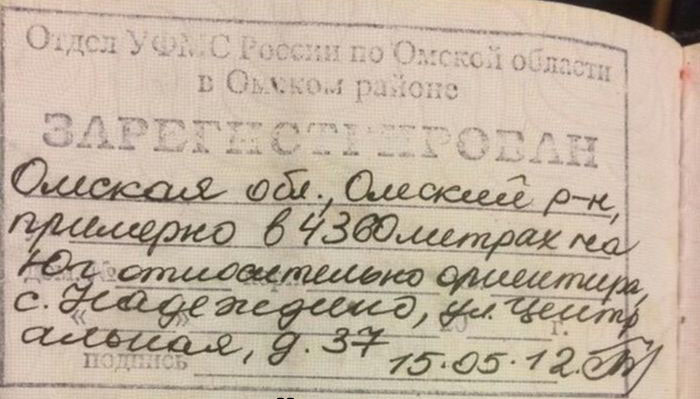 Отдел УФМС России по Омской области
в Омском районе
ЗАРЕГИСТРИРОВАН
Омская обл., Омский р-н,
примерно в 4360 метрах на
Юг относительно ориентира,
с. Надеждино, ул. Центр
« » 20 г.
альная, д. 37
подпись 15.05.12.